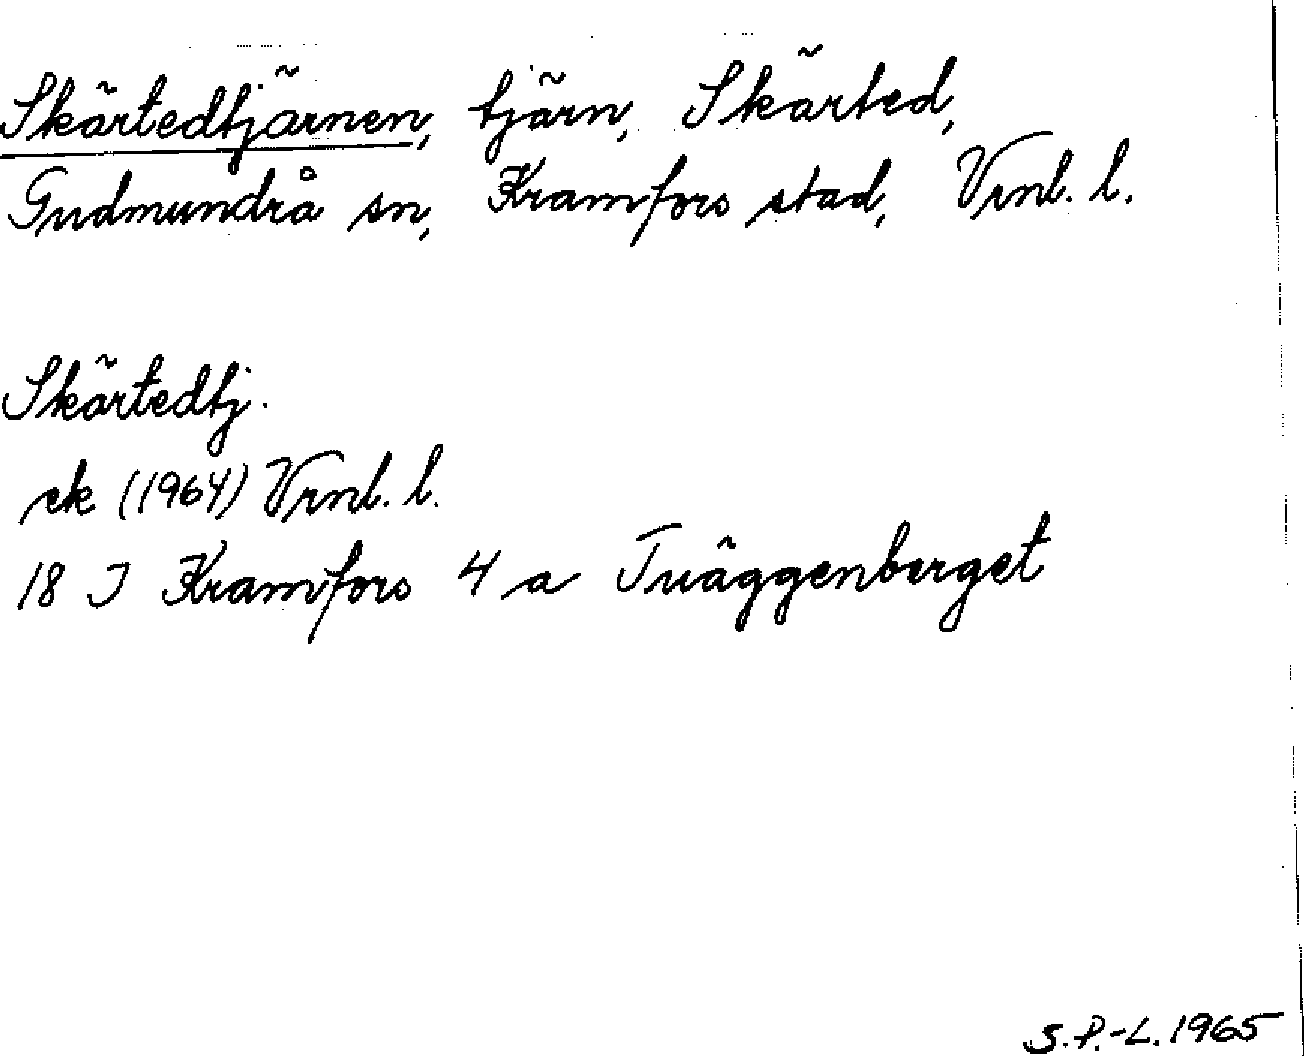 Skärtedtjärnen, tjärn, Skärted,
Gudmundrå sn, Kramfors stad, Vrnl. l.
Skärtedtj.
ek (1964) Vrnl. l.
18 I Kramfors 4 a Tväggenberget
S.P.-L. 1965